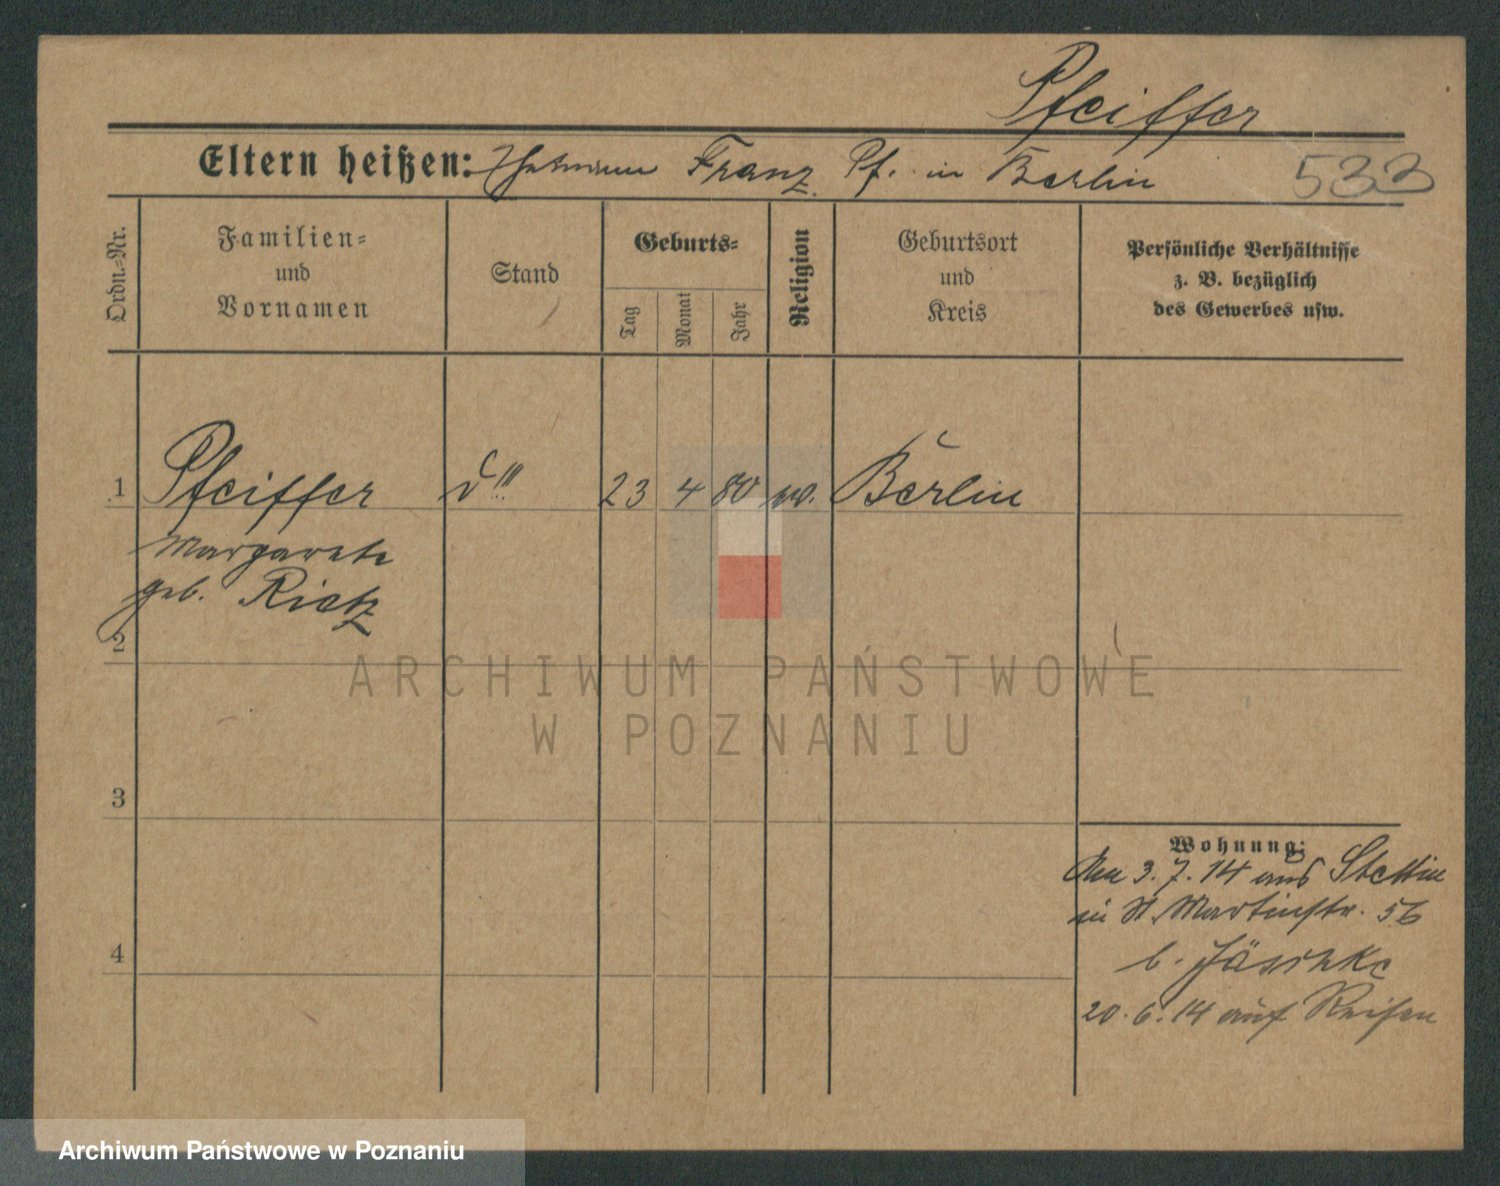 Pfeiffer
Eltern heißen: Ehemann Franz Pf. in Berlin 533
Ordn.-Nr.
Familien-
und
Vornamen
Stand
Geburts-
Tag
Monat
Jahr
Religion
Geburtsort
und
Kreis
Persönliche Verhältnisse
z. B. bezüglich
des Gewerbes usw.
1 Pfeiffer 23 4 80 Berlin
Margarete
geb. Rietz
2
3
4
Wohnung:
3. 7. 14 aus Stettin
in St. Martinstr. 56
b. Jäschke
20. 6. 14 auf Reisen
ARCHIWUM PAŃSTWOWE
W POZNANIU
Archiwum Państwowe w Poznaniu